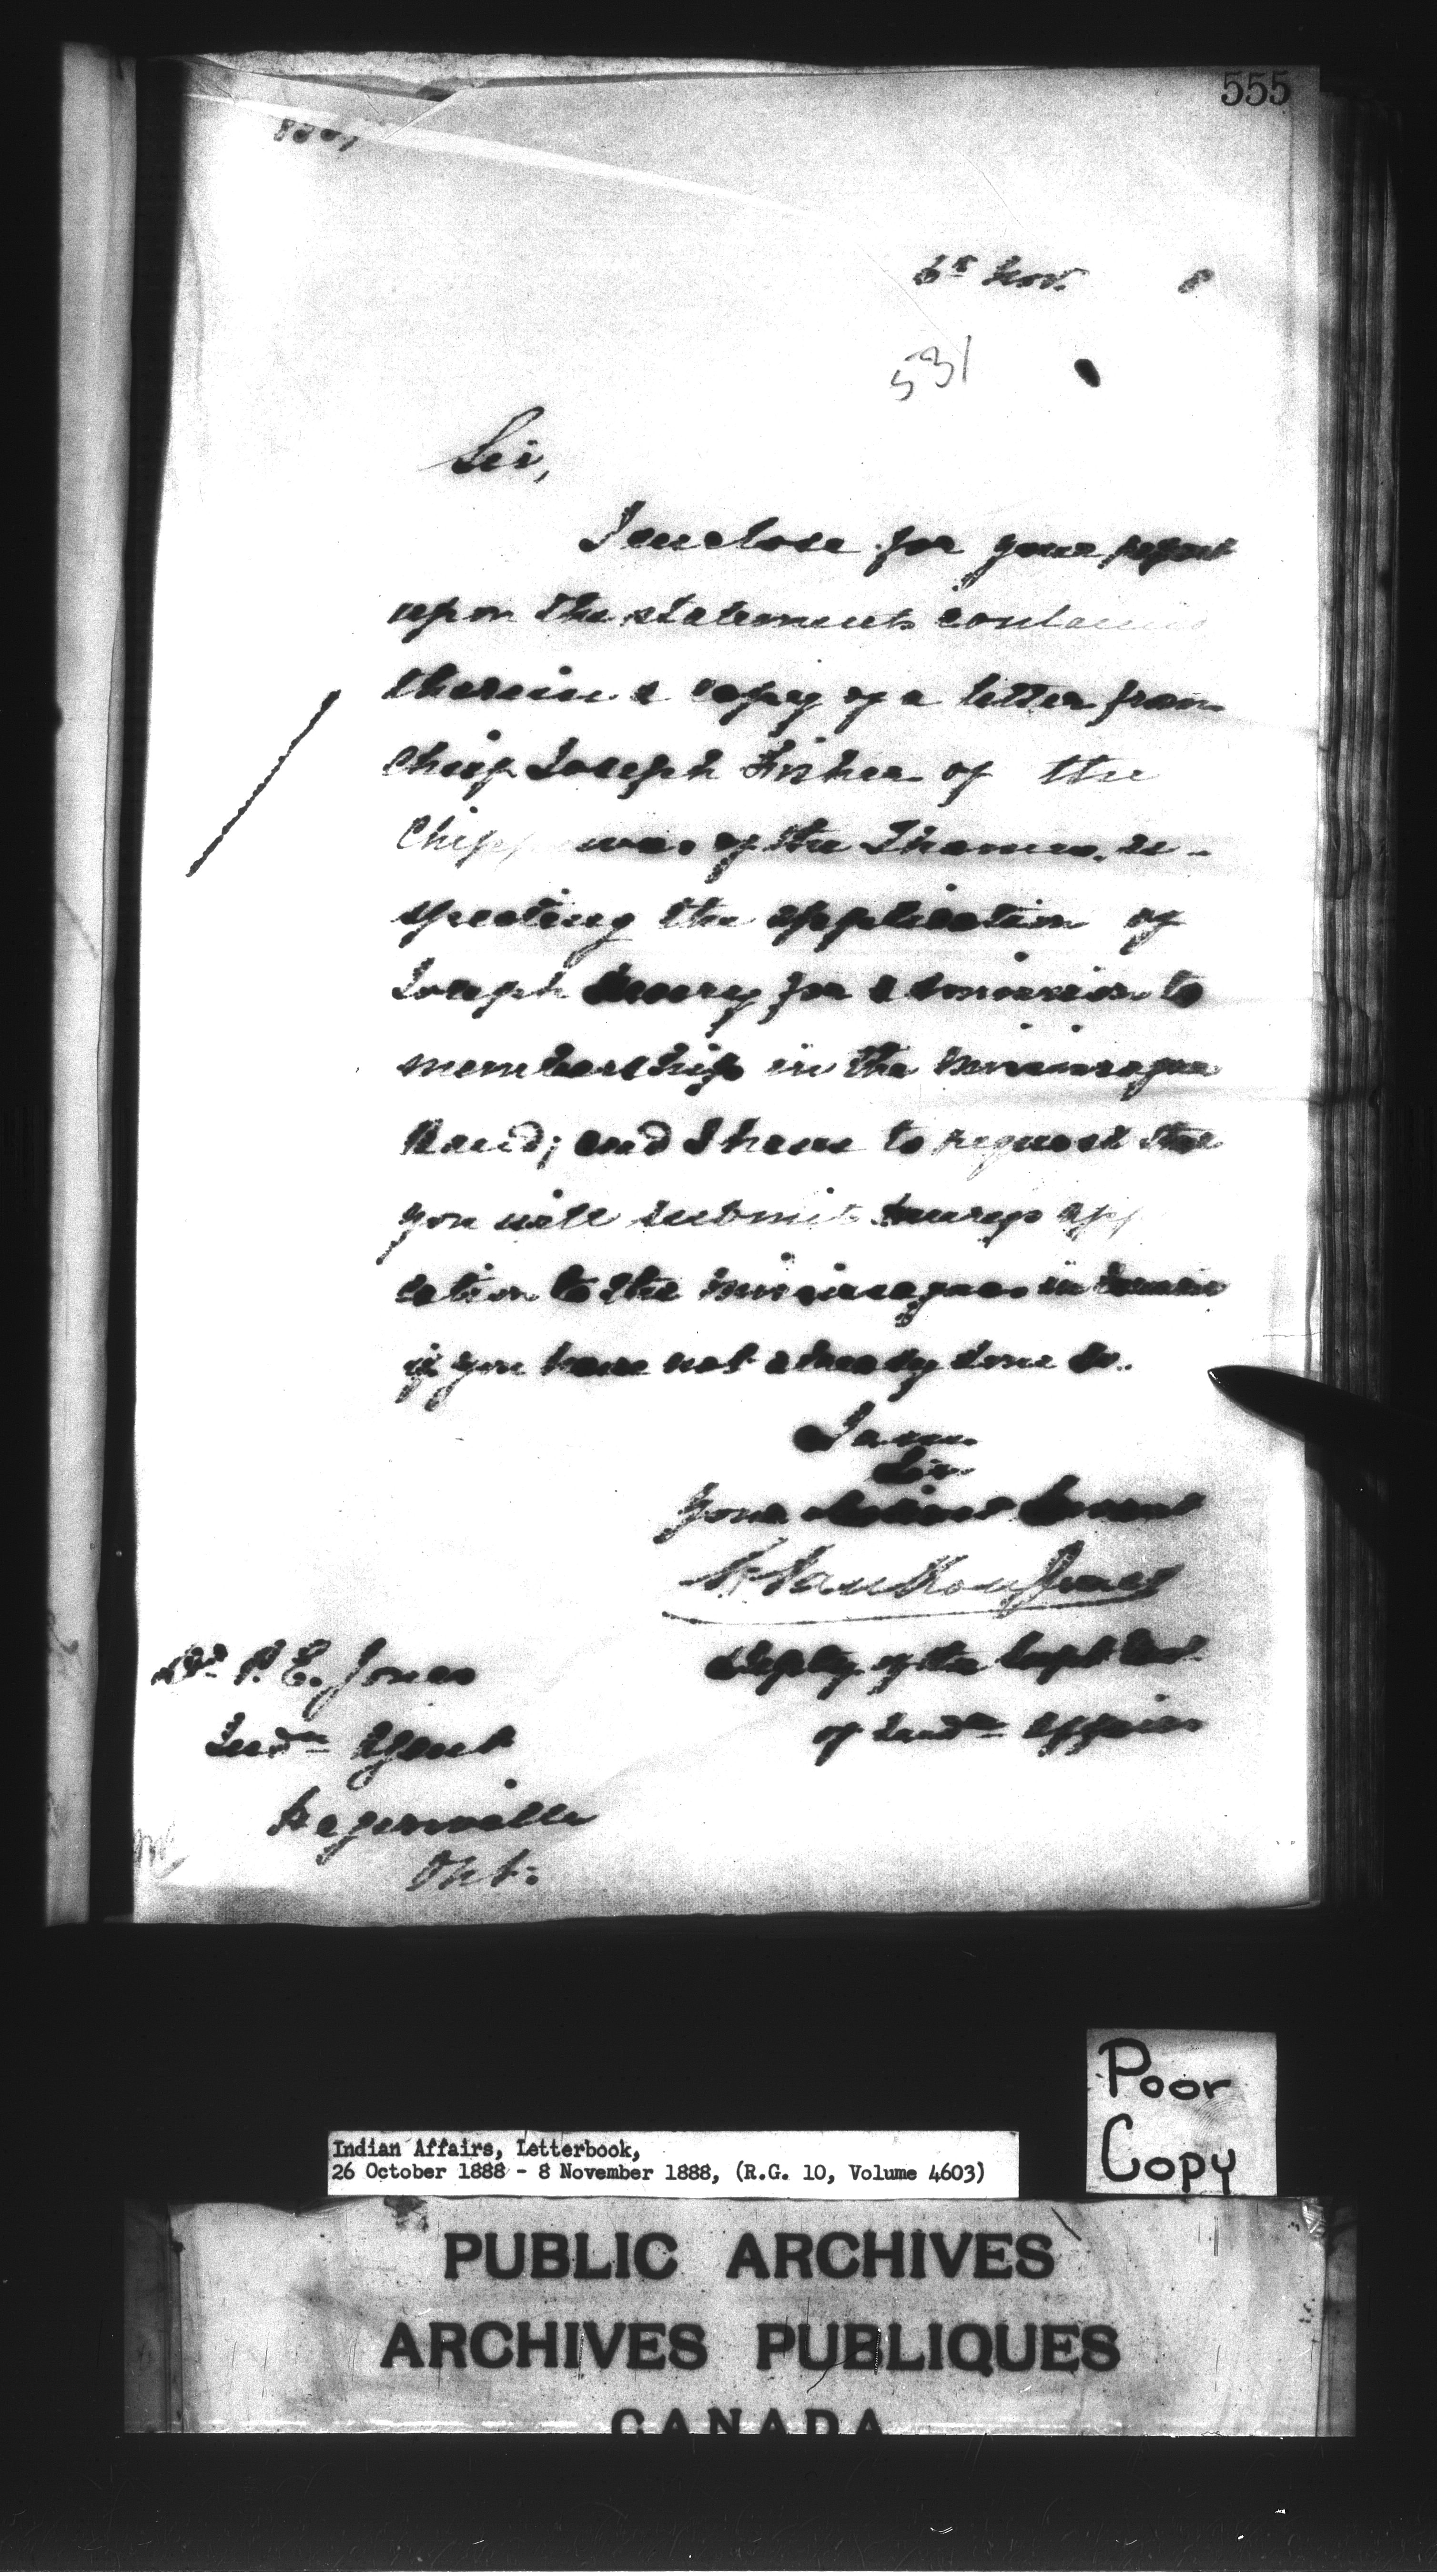 555
6th Nov. 8
531
Sir,
I enclose for your report
upon the statements contained
therein a copy of a letter from
Chief Joseph Fisher of the
Chipp was of the Thames, re-
specting the application of
Joseph Henry for admission to
membership in the Mississagua
Band; and I have to request that
you will submit Henry's app
cation to the Mississaguas in Council
if you have not already done so.
I am
Sir
Your obedient Servant
L. VanKoughnet
Deputy of the Supt Genl.
of Indn Affairs
Dr. P. E. Jones
Indn Agent
Hagersville
Ont.
Poor
Copy
Indian Affairs, Letterbook,
26 October 1888 - 8 November 1888, (R.G. 10, Volume 4603)
PUBLIC ARCHIVES
ARCHIVES PUBLIQUES
CANADA